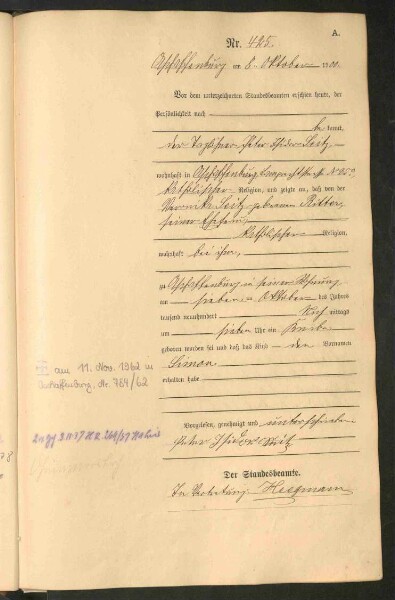 A.
Nr. 425.
Aschaffenburg am 8. Oktober 1900.
Vor dem unterzeichneten Standesbeamten erschien heute, der
Persönlichkeit nach
kannt,
der Taglöhner Peter Isidor Seitz
wohnhaft in Aschaffenburg
katholischer Religion, und zeigte an, daß von der
Veronika Seitz, geborenen Ritter,
seiner Ehefrau,
katholischer Religion,
wohnhaft bei ihm,
zu Aschaffenburg in seiner Wohnung
am sieben Oktober des Jahres
tausend neunhundert Nachmittags
um sieben Uhr ein Knabe
geboren worden sei und daß das Kind den Vornamen
Simon
erhalten habe
am 11. Nov. 1962 in
Aschaffenburg, Nr. 784/62
Vorgelesen, genehmigt und unterschrieben
Peter Isidor Seitz
Der Standesbeamte.
In Vertretung: